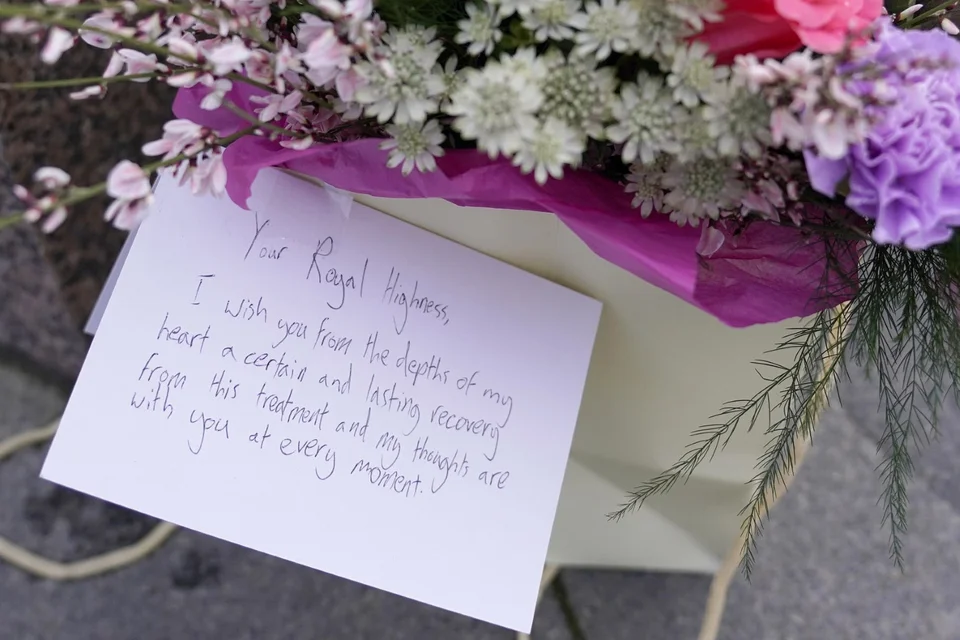 Your Royal Highness,
I wish you from the depths of my
heart a certain and lasting recovery
from this treatment and my thoughts are
with you at every moment.